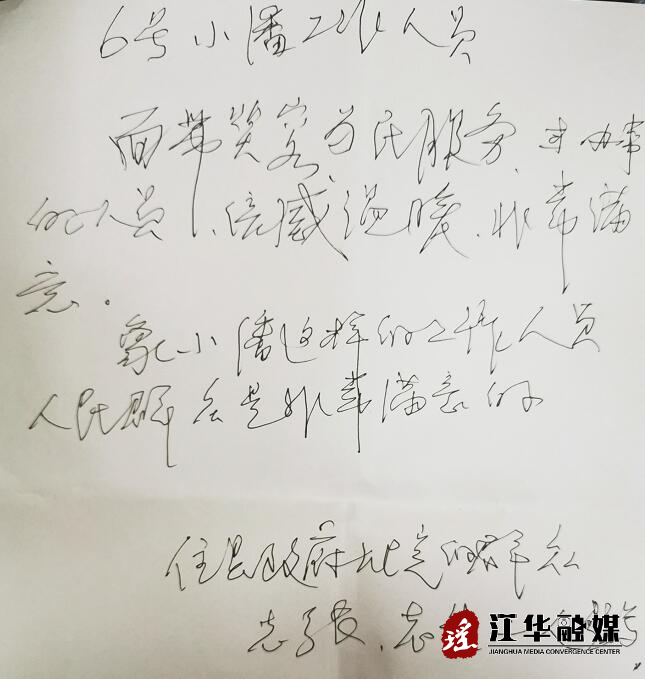 6号小潘工作人员
面带笑容为民服务,对办事
的人员、倍感温暖、非常满
意。
象小潘这样的工作人员
人民群众是非常满意的
住县政府北完的群众
老张、老
瑶 江华融媒
JIANGHUA MEDIA CONVERGENCE CENTER